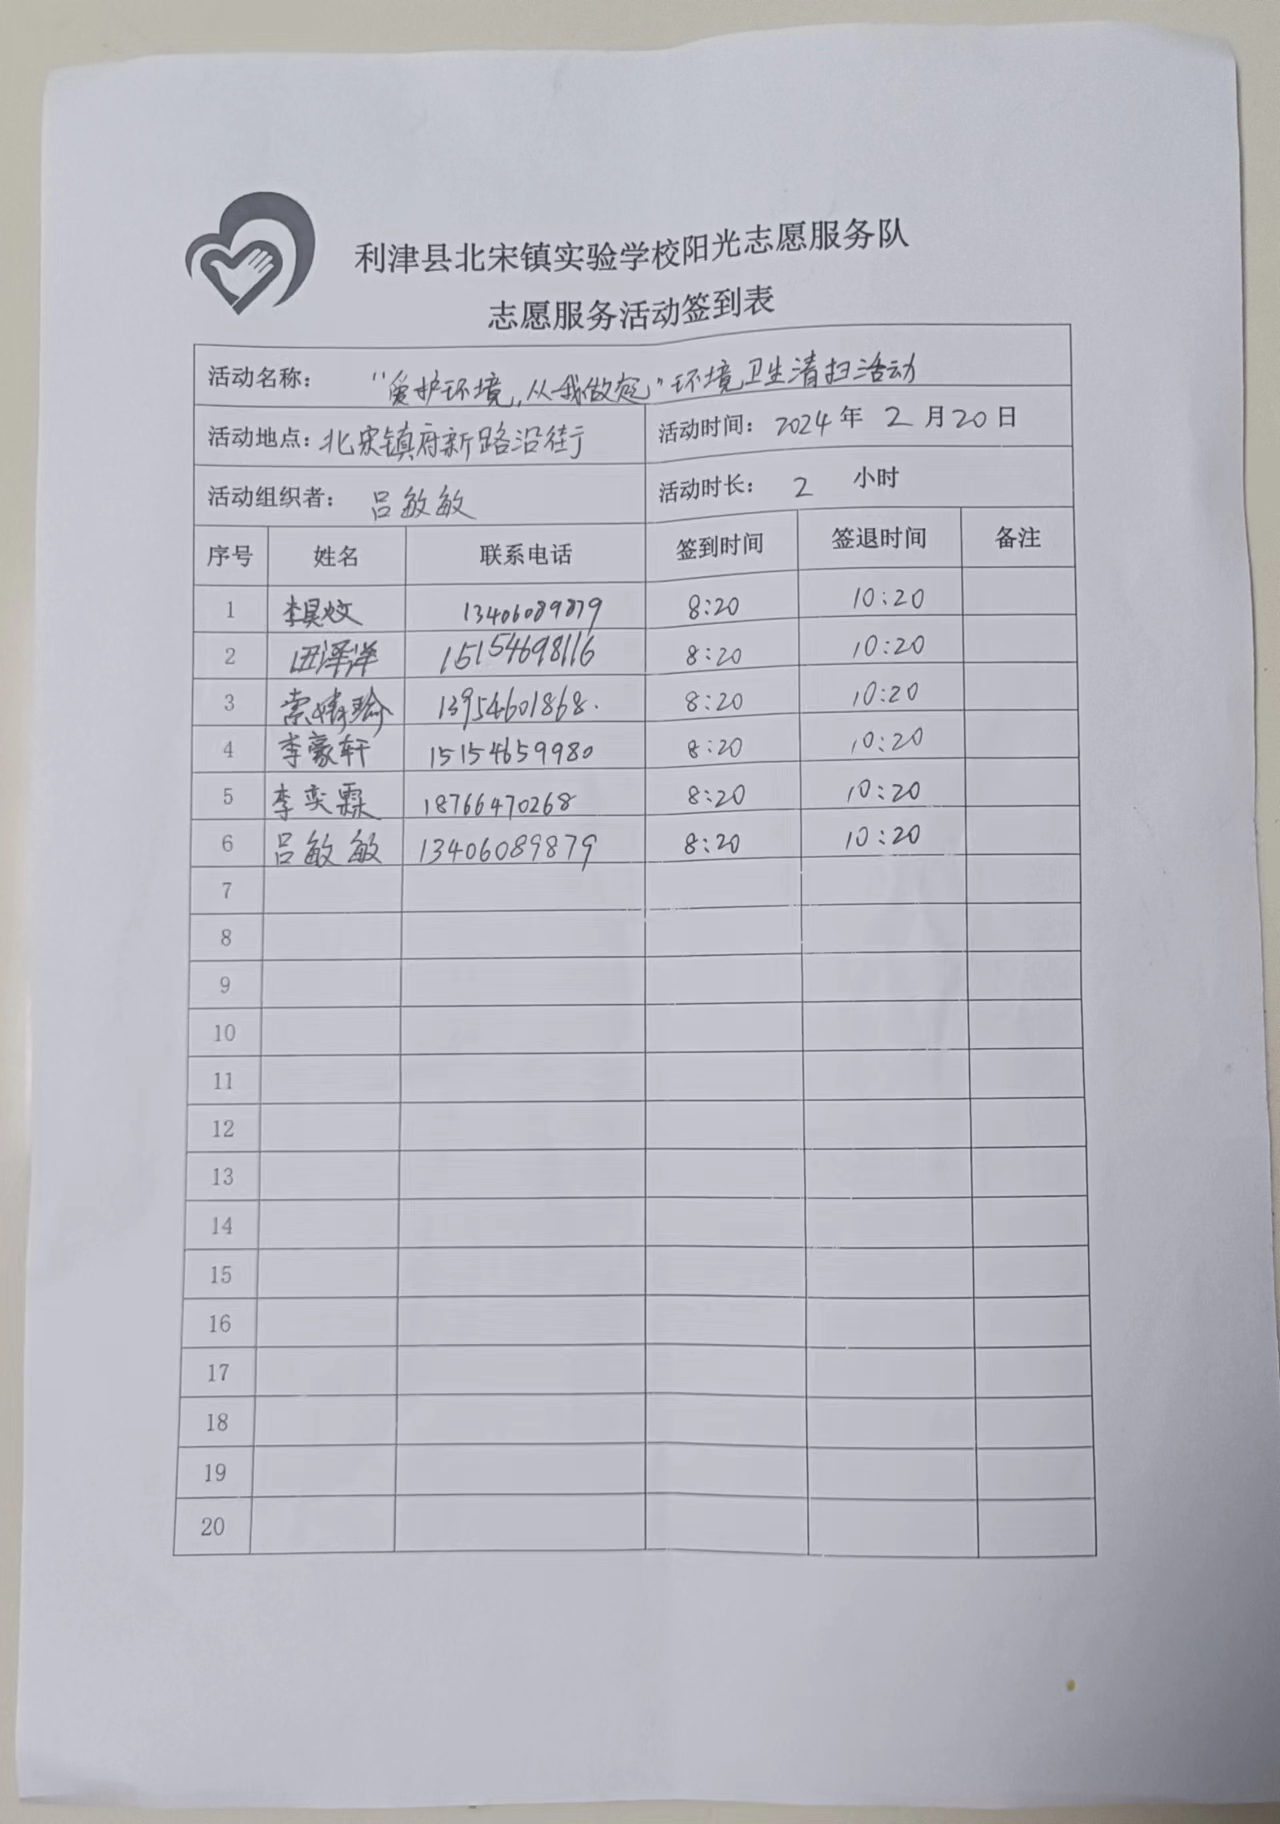 利津县北宋镇实验学校阳光志愿服务队
志愿服务活动签到表
活动名称： “爱护环境,从我做起”环境卫生清扫活动
活动地点：北宋镇府新路沿街 活动时间：2024年 2月20日
活动组织者： 吕敏敏 活动时长： 2 小时
序号 姓名 联系电话 签到时间 签退时间 备注
1 李昊炆 13406089879 8:20 10:20
2 田泽洋 15154698116 8:20 10:20
3 索婧瑜 13954601868. 8:20 10:20
4 李豪轩 15154659980 8:20 10:20
5 李奕霖 18766470268 8:20 10:20
6 吕敏敏 13406089879 8:20 10:20
7
8
9
10
11
12
13
14
15
16
17
18
19
20